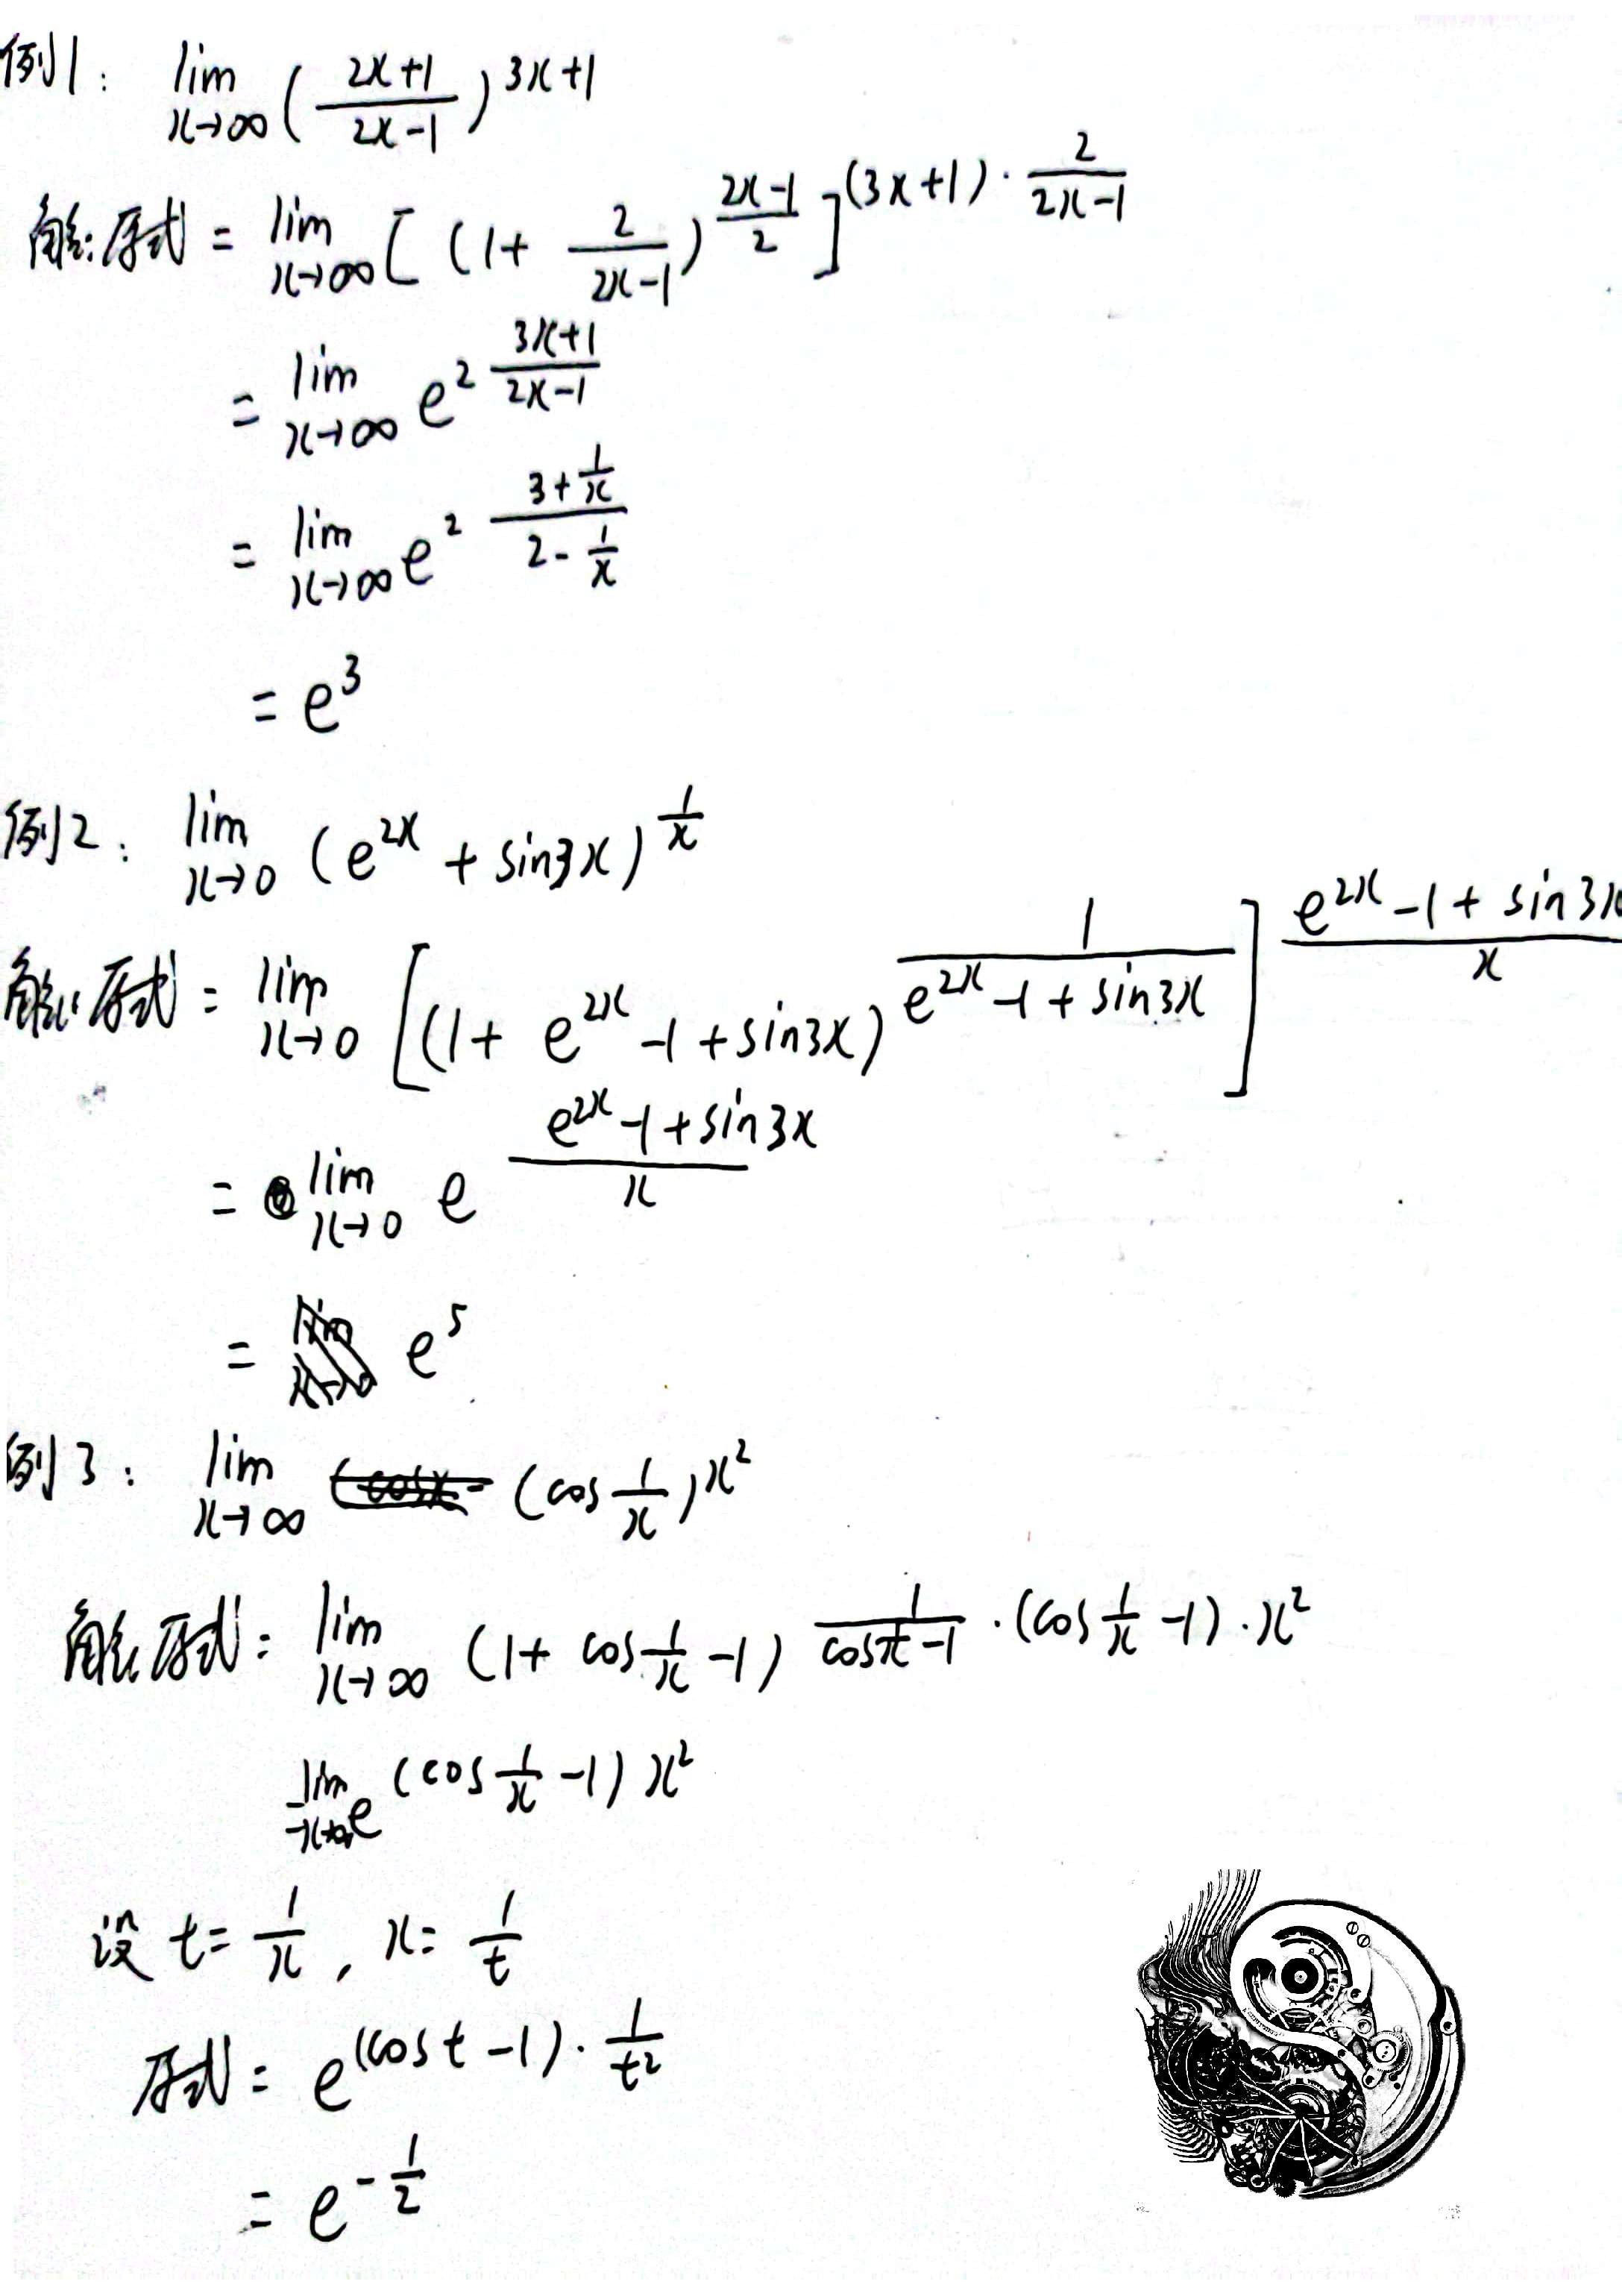 例1: lim x→∞ ( (2x+1)/(2x-1) )^(3x+1)
解:原式 = lim x→∞ [ (1+ 2/(2x-1))^((2x-1)/2) ]^((3x+1)·2/(2x-1))
= lim x→∞ e^(2 (3x+1)/(2x-1))
= lim x→∞ e^(2 (3+1/x)/(2-1/x))
= e^3
例2: lim x→0 (e^(2x) + sin3x)^(1/x)
解:原式 = lim x→0 [(1+ e^(2x) -1+sin3x)^(1/(e^(2x)-1+sin3x))]^((e^(2x)-1+sin3x)/x)
= lim x→0 e^((e^(2x)-1+sin3x)/x)
= e^5
例3: lim x→∞ (cos 1/x)^(x^2)
解:原式= lim x→∞ (1+ cos 1/x -1)^(1/(cos 1/x -1) ·(cos 1/x -1)·x^2)
lim x→∞ e^((cos 1/x -1) x^2)
设 t= 1/x , x= 1/t
原式= e^((cos t -1)· 1/t^2)
= e^(-1/2)